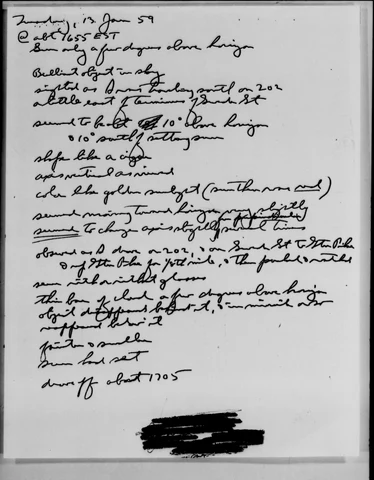 Tuesday, 13 Jan 59
@ abt 1655 EST
Sun only a few degrees above horizon
Brilliant object in sky
sighted as I was heading south on 202
a little east of terminus of Gurd St
seemed to be 10° above horizon
& 10° south of setting sun
shape like a cigar
axis vertical as viewed
color like golden sunlight (sun then was red)
seemed moving toward horizon very slightly
seemed to change axis slightly several times
observed as I drove on 202, & on St to Pike
& on Pike for mile, & then parked & watched
seen with & without glasses
thin bar of cloud a few degrees above horizon
object disappeared behind it, & in minute or so
reappeared below it
fainter & smaller
sun had set
drove off about 1705